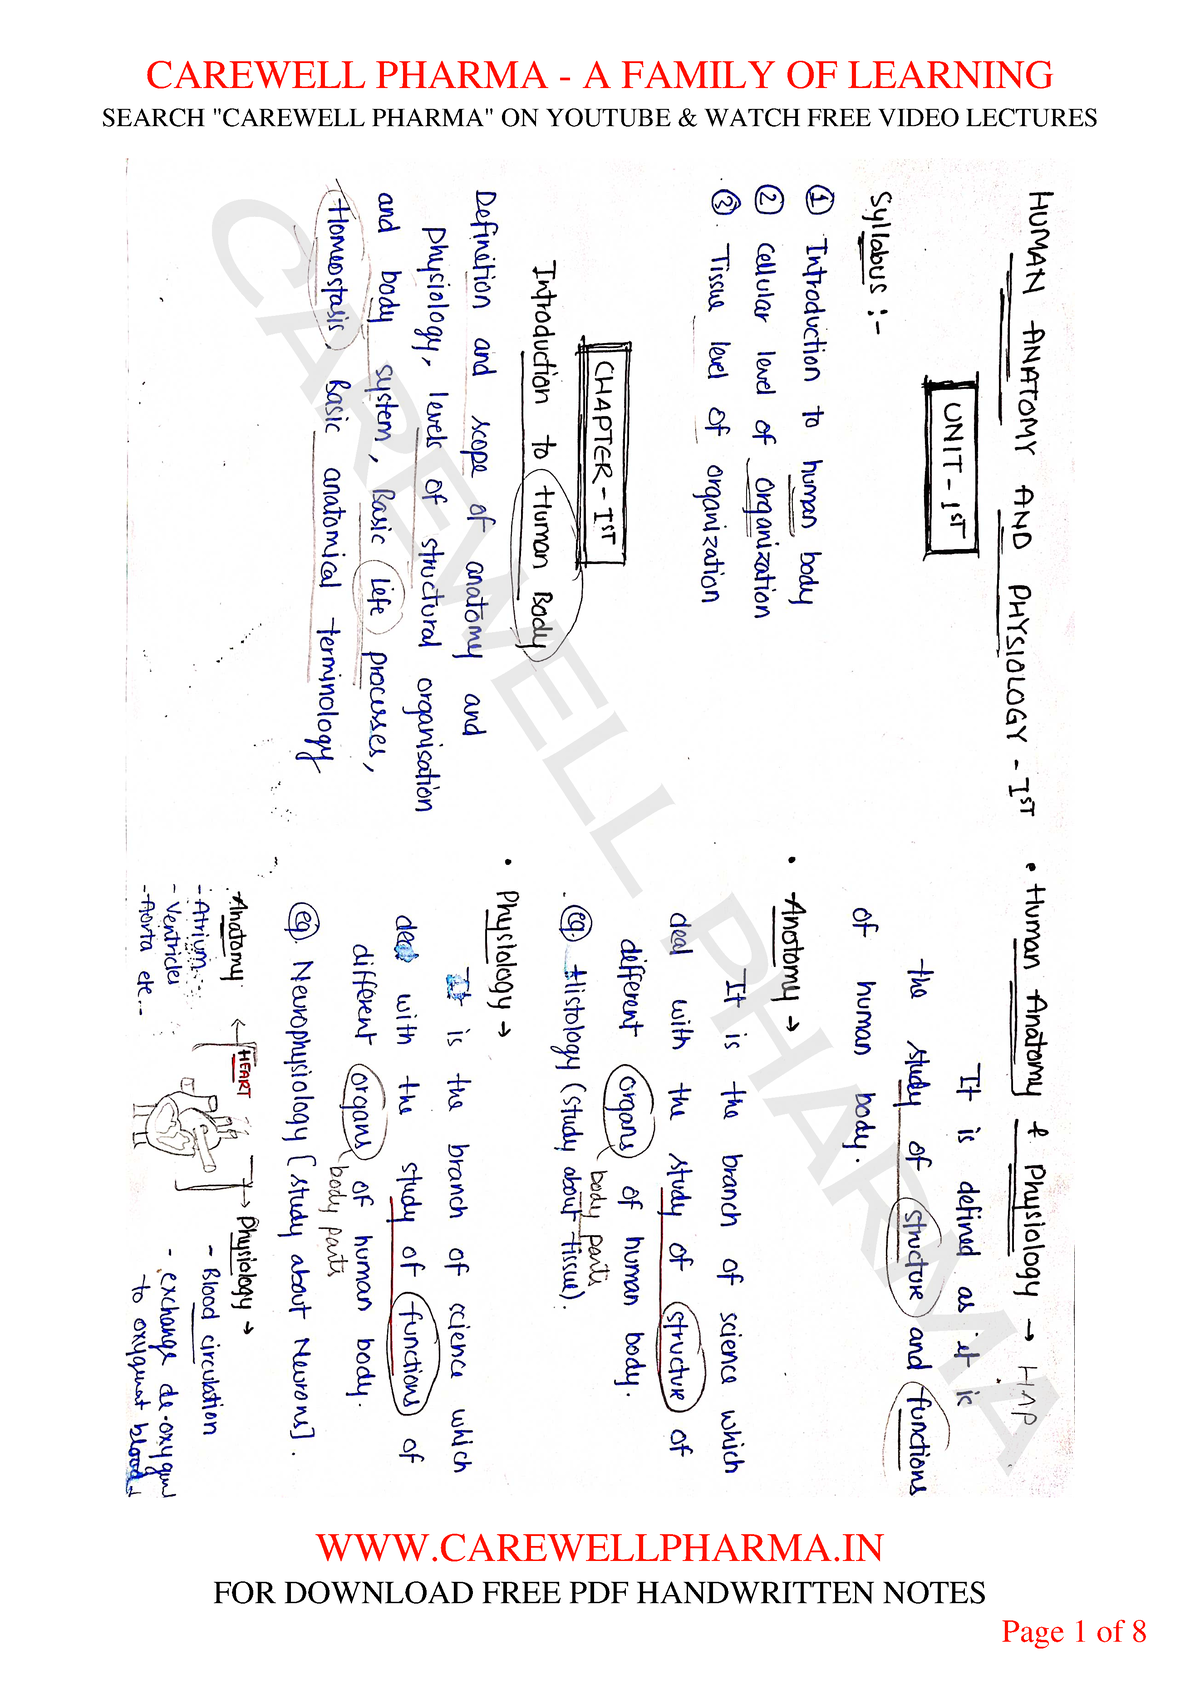 CAREWELL PHARMA - A FAMILY OF LEARNING
SEARCH "CAREWELL PHARMA" ON YOUTUBE & WATCH FREE VIDEO LECTURES
HUMAN ANATOMY AND PHYSIOLOGY - IST
UNIT - 1ST
Syllabus :-
① Introduction to human body
② cellular level of organization
③ Tissue level of organization
CHAPTER - IST
Introduction to Human Body
Definition and scope of anatomy and
Physiology, levels of structural organisation
and body system, Basic Life processes,
Homeostasis, Basic anatomical terminology
• Human Anatomy & Physiology → HAP
It is defined as it is
the study of structure and functions
of human body.
• Anotomy →
It is the branch of science which
deal with the study of structure of
different organs of human body.
body parts
eg. Histology (study about tissue).
• Physiology →
It is the branch of science which
deal with the study of functions of
different organs of human body.
body parts
eg. Neurophysiology [study about Neurons].
Anatomy
- Atrium
- Ventricles
- Aorta etc...
HEART
Physiology →
- Blood circulation
- exchange de-oxygen
to oxygenat blood
CAREWELL PHARMA
WWW.CAREWELLPHARMA.IN
FOR DOWNLOAD FREE PDF HANDWRITTEN NOTES
Page 1 of 8